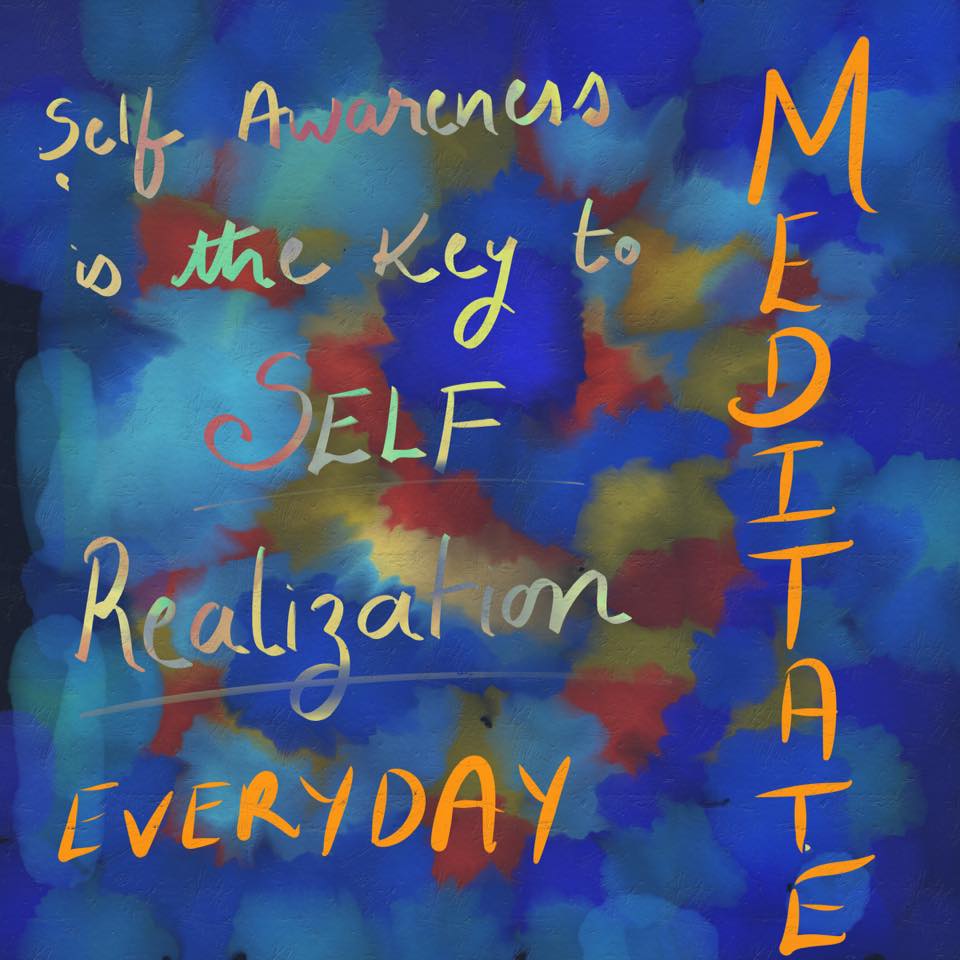 Self Awareness
is the Key to
SELF
Realization
EVERYDAY
MEDITATE